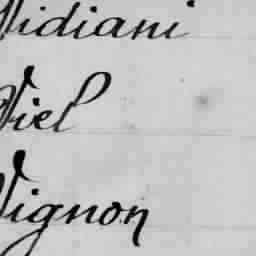 Vidiani
Viel
Vignon